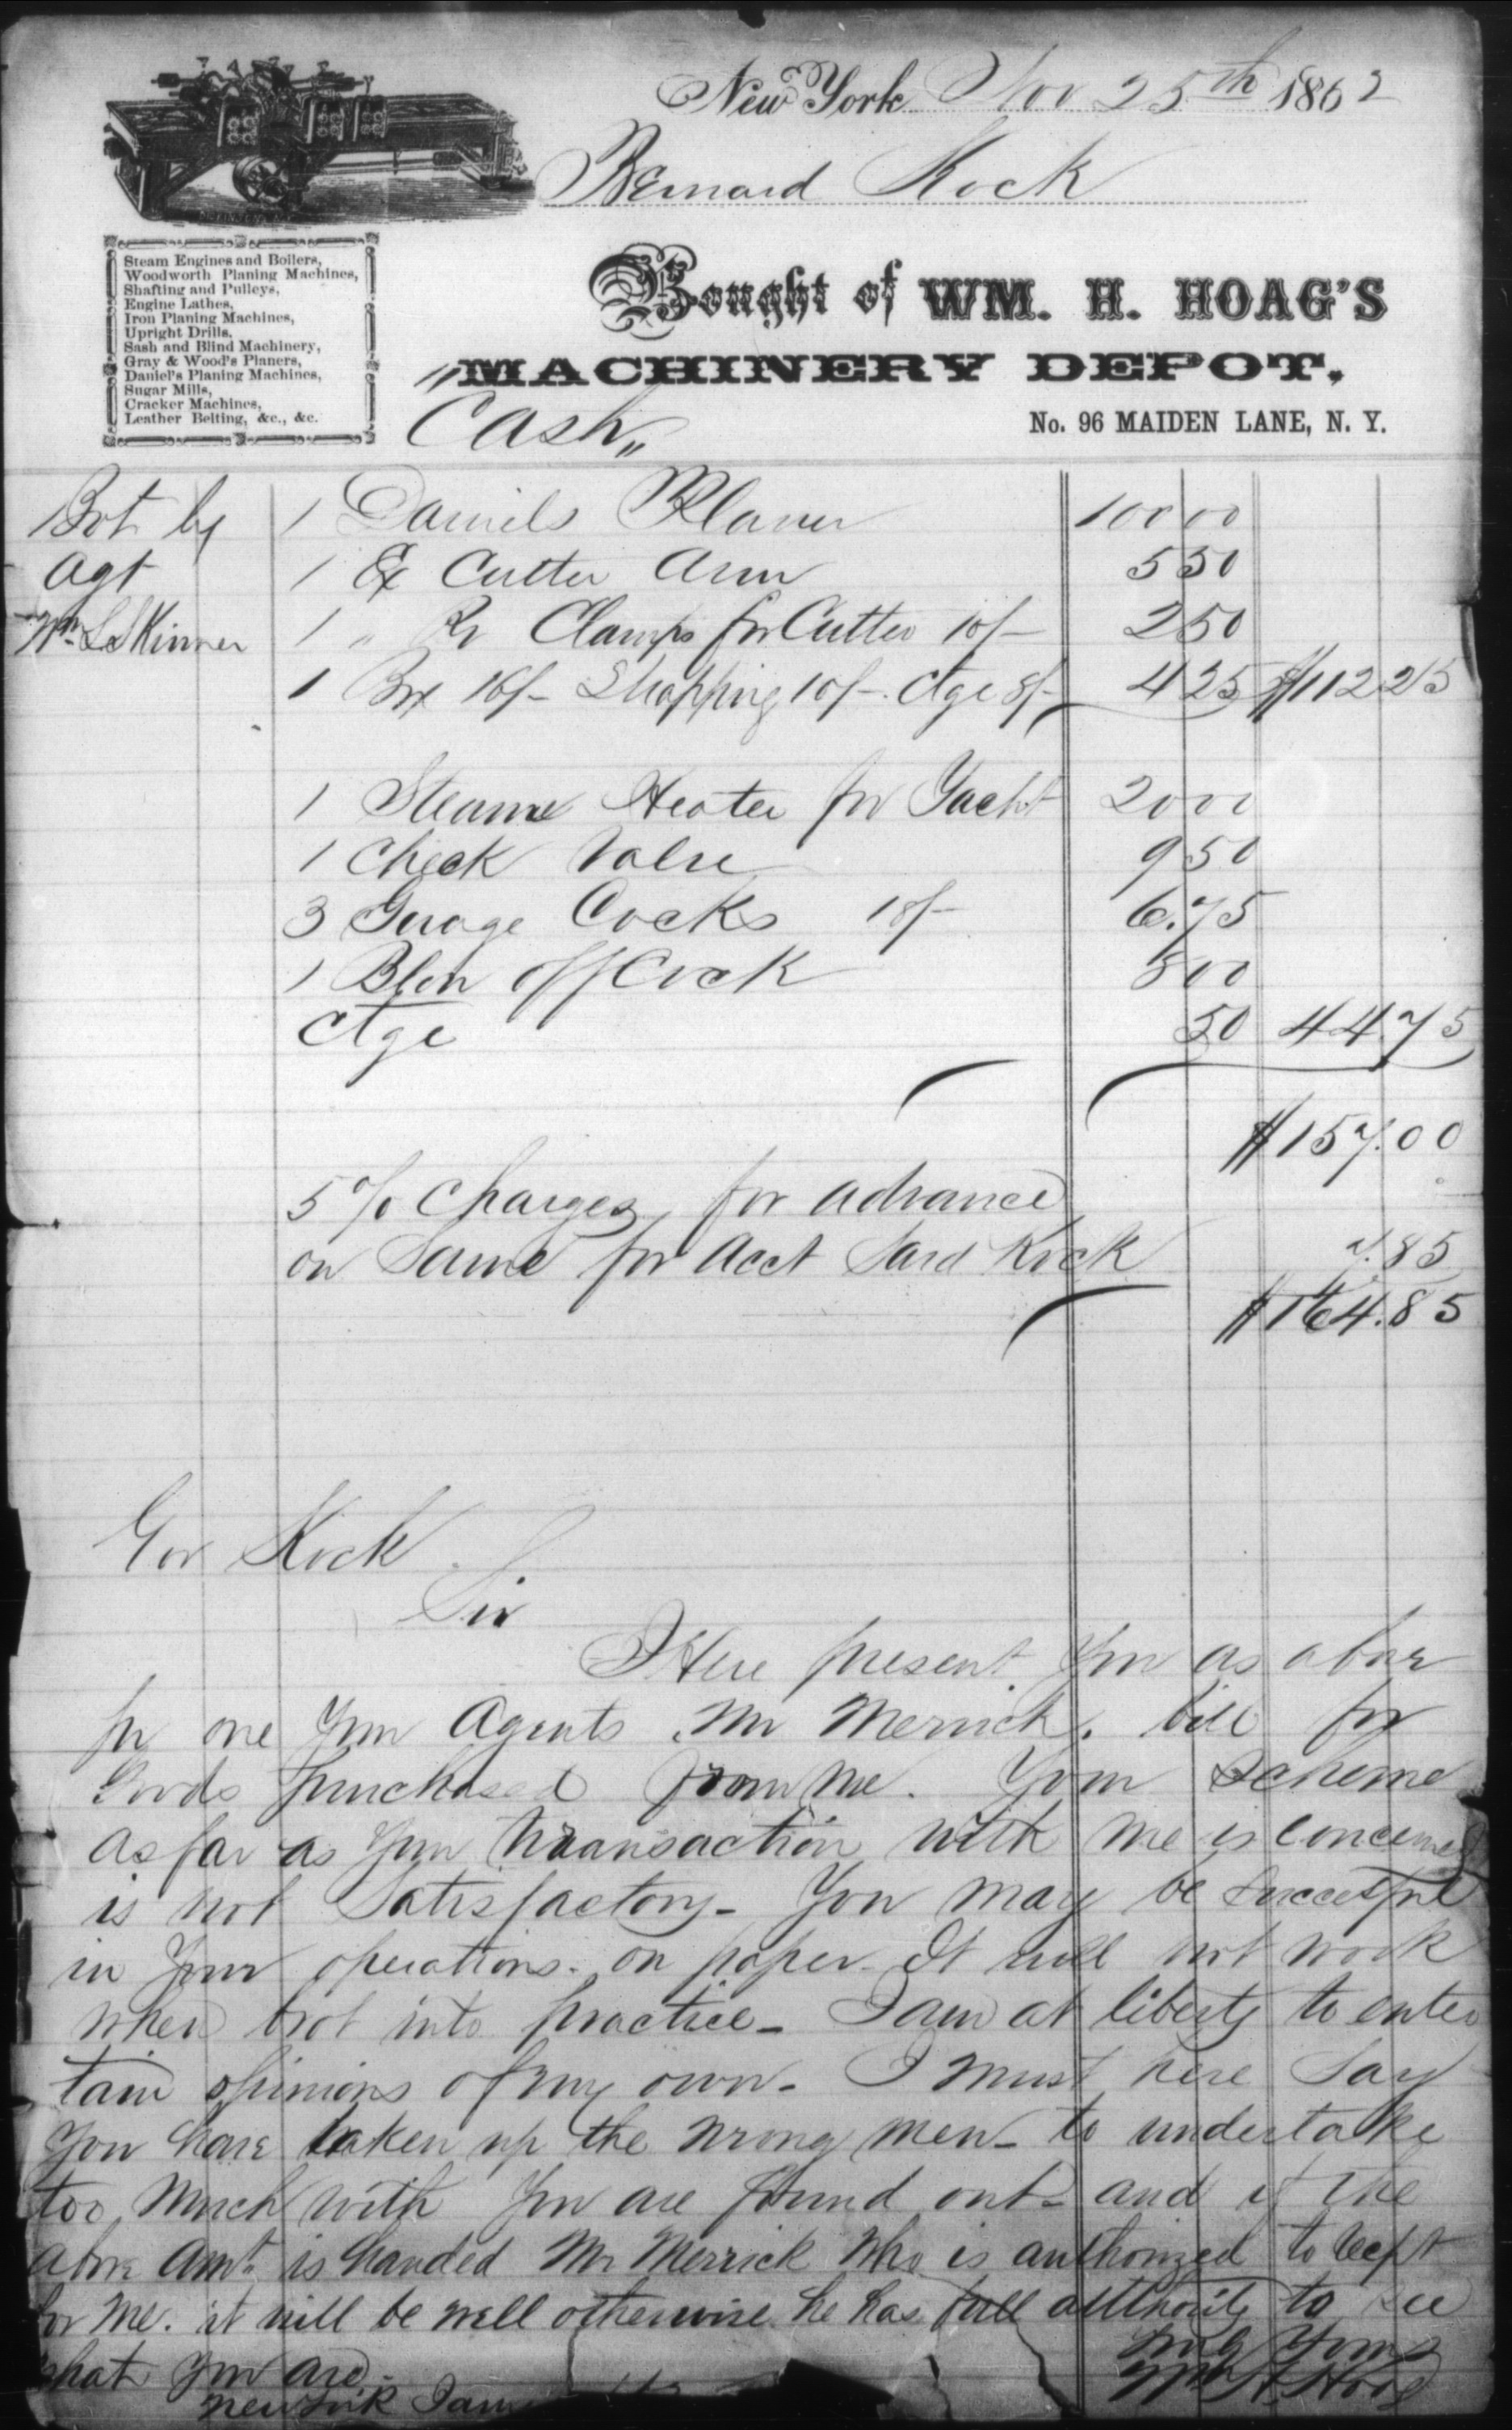 New York Nov 25th 1862
Bernard Kock
Steam Engines and Boilers,
Woodworth Planing Machines,
Shafting and Pulleys,
Engine Lathes,
Iron Planing Machines,
Upright Drills,
Sash and Blind Machinery,
Gray & Wood's Planers,
Daniel's Planing Machines,
Sugar Mills,
Cracker Machines,
Leather Belting, &c., &c.
Bought of WM. H. HOAG'S
MACHINERY DEPOT,
"Cash"
No. 96 MAIDEN LANE, N. Y.
Bot by 1 Daniels Planer 100 00
Agt 1 Ex Cutter Arm 5 50
Wm L Skinner 1 " Pr Clamps for Cutter 10/- 2 50
1 Box 16/- Strapping 10/- Ctge 8/- 4 25 $112 25
1 Steam Heater for Yacht 20 00
1 Check Valve 9 50
3 Guage Cocks 18/- 6.75
1 Blow off Cock 8 00
Ctge 50 44.75
$157.00
5 % Charges, for advance
on Same for Acct Said Kock 7.85
$164.85
Gov Kock
Sir
I Here present you as above
pr one your Agents Mr Merrick. bill for
Goods purchased from me. Your Scheme
as far as your transaction with me is concerned
is not Satisfactory - You may be Successful
in your operations - on paper - It will not work
when brot into practice - I am at liberty to enter
tain opinions of my own - I must here Say
You have taken up the wrong men - to undertake
too much with You are found out - and if the
above Amt. is handed Mr Merrick who is authorized to
for me. it will be well otherwise he has full authority to see
what you are.
Yours
Wm H. Hoag
New York Jany